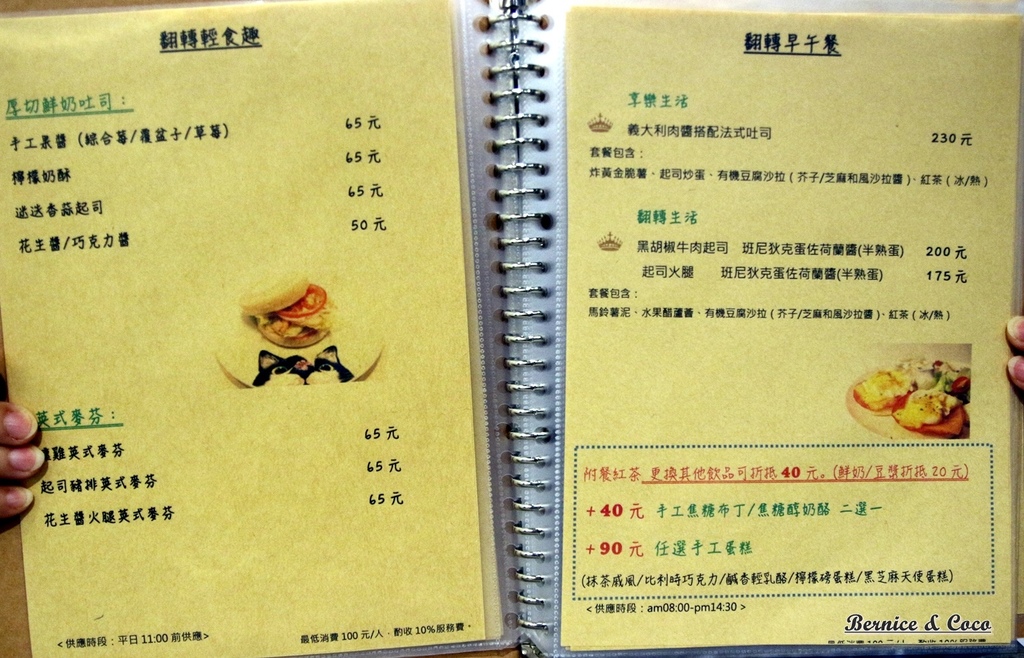 翻轉輕食趣
厚切鮮奶吐司：
手工果醬（綜合莓/覆盆子/草莓） 65 元
檸檬奶酥 65 元
迷迭香蒜起司 65 元
花生醬/巧克力醬 50 元
英式麥芬：
雞英式麥芬 65 元
起司豬排英式麥芬 65 元
花生醬火腿英式麥芬 65 元
<供應時段：平日 11:00 前供應> 最低消費 100 元/人，酌收 10%服務費。
翻轉早午餐
享樂生活
義大利肉醬搭配法式吐司 230 元
套餐包含：
炸黃金脆薯、起司炒蛋、有機豆腐沙拉（芥子/芝麻和風沙拉醬）、紅茶（冰/熱）
翻轉生活
黑胡椒牛肉起司 班尼狄克蛋佐荷蘭醬(半熟蛋) 200 元
起司火腿 班尼狄克蛋佐荷蘭醬(半熟蛋) 175 元
套餐包含：
馬鈴薯泥、水果醋蘆薈、有機豆腐沙拉（芥子/芝麻和風沙拉醬）、紅茶（冰/熱）
附餐紅茶 更換其他飲品可折抵 40 元。(鮮奶/豆漿折抵 20 元)
+40 元 手工焦糖布丁/焦糖醇奶酪 二選一
+90 元 任選手工蛋糕
(抹茶戚風/比利時巧克力/鹹香輕乳酪/檸檬磅蛋糕/黑芝麻天使蛋糕)
<供應時段：am08:00-pm14:30>
Bernice & Coco